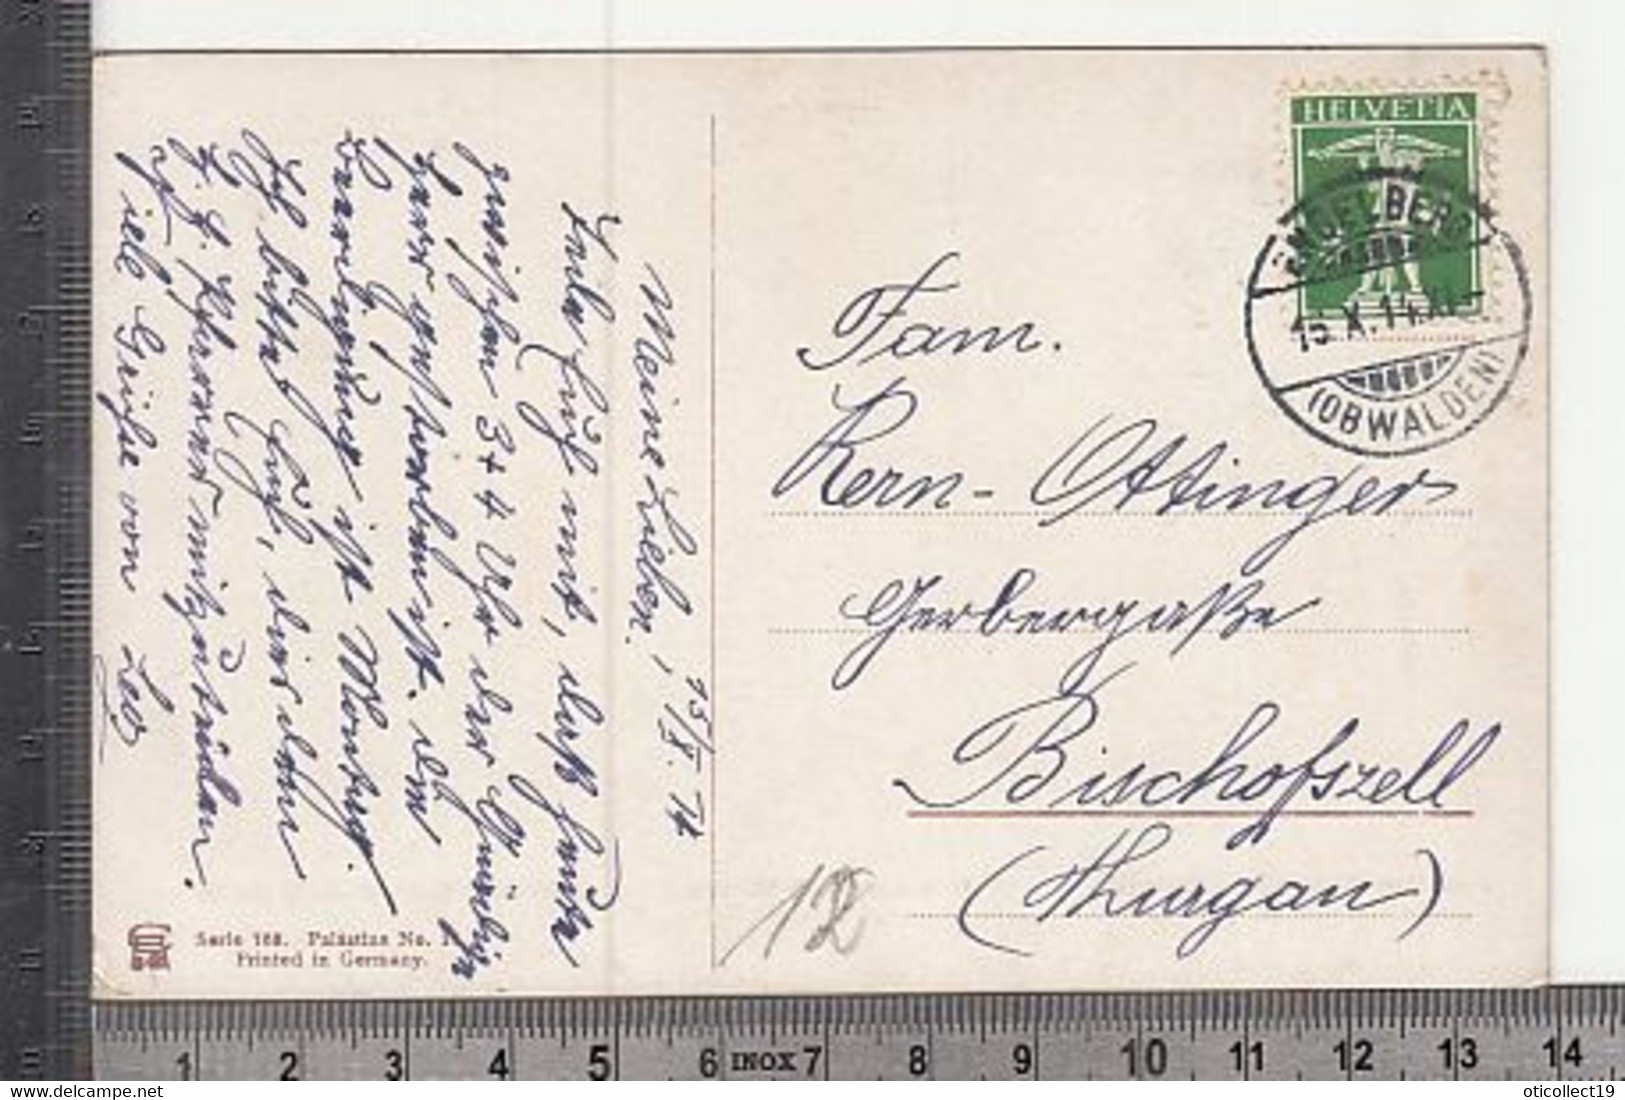 Meine Lieben! 15/X. 14
Teile Euch mit, daß heute
zwischen 3 + 4 Uhr der
Herr gestorben ist. Die
Beerdigung ist Montag.
Ich bitte Euch,
mitzuteilen.
viele Grüße von Leo
HELVETIA
ENGELBERG
15.X.14.XI-
(OBWALDEN)
Fam.
Kern-Ottinger
Gerbergaße
Bischofszell
(Thurgau)
12
Serie 168. Palästina No. 1
Printed in Germany.
1 2 3 4 5 6 INOX 7 8 9 10 11 12 13 14
www.delcampe.net
oticollect19